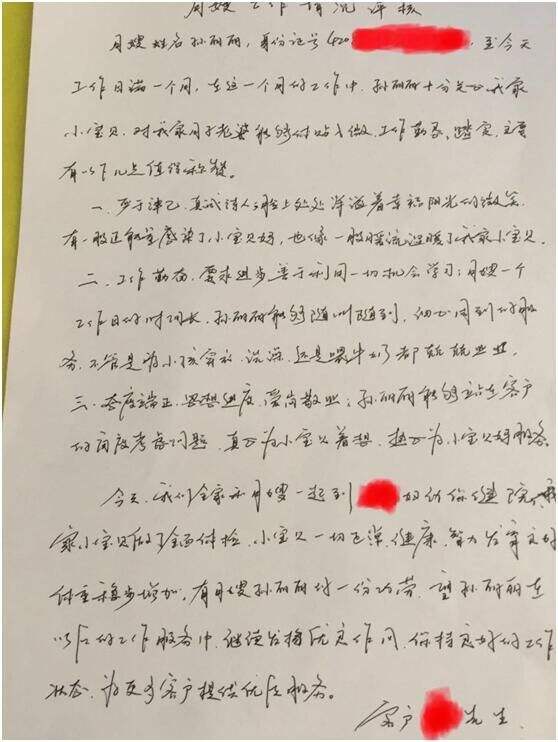 月嫂工作情况评核
月嫂姓名孙丽丽,身份证号420 至今天
工作日满一个月,在这一个月的工作中,孙丽丽十分关心我家
小宝贝,对我家月子老婆能够体贴入微,工作勤恳,踏实,主要
有以下几点值得称赞。
一、严于律己,真诚待人;脸上处处洋溢着幸福阳光的微笑
有一股正能量感染了小宝贝好,也像一股暖流温暖了我家小宝贝
二、工作勤奋,要求进步善于利用一切机会学习;月嫂一个
工作日的时间长,孙丽丽能够随叫随到,细心周到的服
务,不管是为小孩穿衣、洗澡、还是喂牛奶都兢兢业业,
三、态度端正,思想进度,爱岗敬业;孙丽丽能够站在客户
的角度考虑问题,真正为小宝贝着想,热心为小宝贝好服务。
今天,我们全家和月嫂一起到 妇幼保健院,我
家小宝贝做了全面体检,小宝贝一切正常,健康,智力发育良好
体重稳步增加,有月嫂孙丽丽付一份功劳,望孙丽丽在
以后的工作服务中,继续发扬优良作风,保持良好的工作
状态,为更多客户提供优质服务。
客户 先生